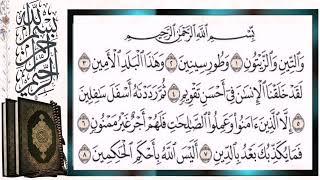 بِسْمِ اللَّهِ الرَّحْمَٰنِ الرَّحِيمِ
بِسْمِ اللَّهِ الرَّحْمَٰنِ الرَّحِيمِ
وَالتِّينِ وَالزَّيْتُونِ ١ وَطُورِ سِينِينَ ٢ وَهَٰذَا الْبَلَدِ الْأَمِينِ ٣
لَقَدْ خَلَقْنَا الْإِنسَٰنَ فِي أَحْسَنِ تَقْوِيمٍ ٤ ثُمَّ رَدَدْنَٰهُ أَسْفَلَ سَٰفِلِينَ
٥ إِلَّا الَّذِينَ ءَامَنُوا وَعَمِلُوا الصَّٰلِحَٰتِ فَلَهُمْ أَجْرٌ غَيْرُ مَمْنُونٍ ٦
فَمَا يُكَذِّبُكَ بَعْدُ بِالدِّينِ ٧ أَلَيْسَ اللَّهُ بِأَحْكَمِ الْحَٰكِمِينَ ٨